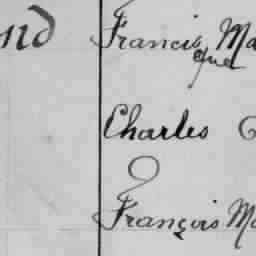 nd Francis Ma
quel
Charles
François Ma